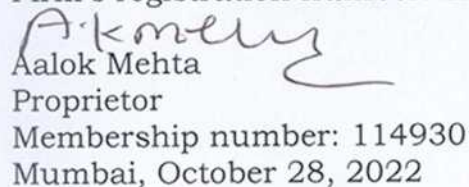 A.kmeh
Aalok Mehta
Proprietor
Membership number: 114930
Mumbai, October 28, 2022